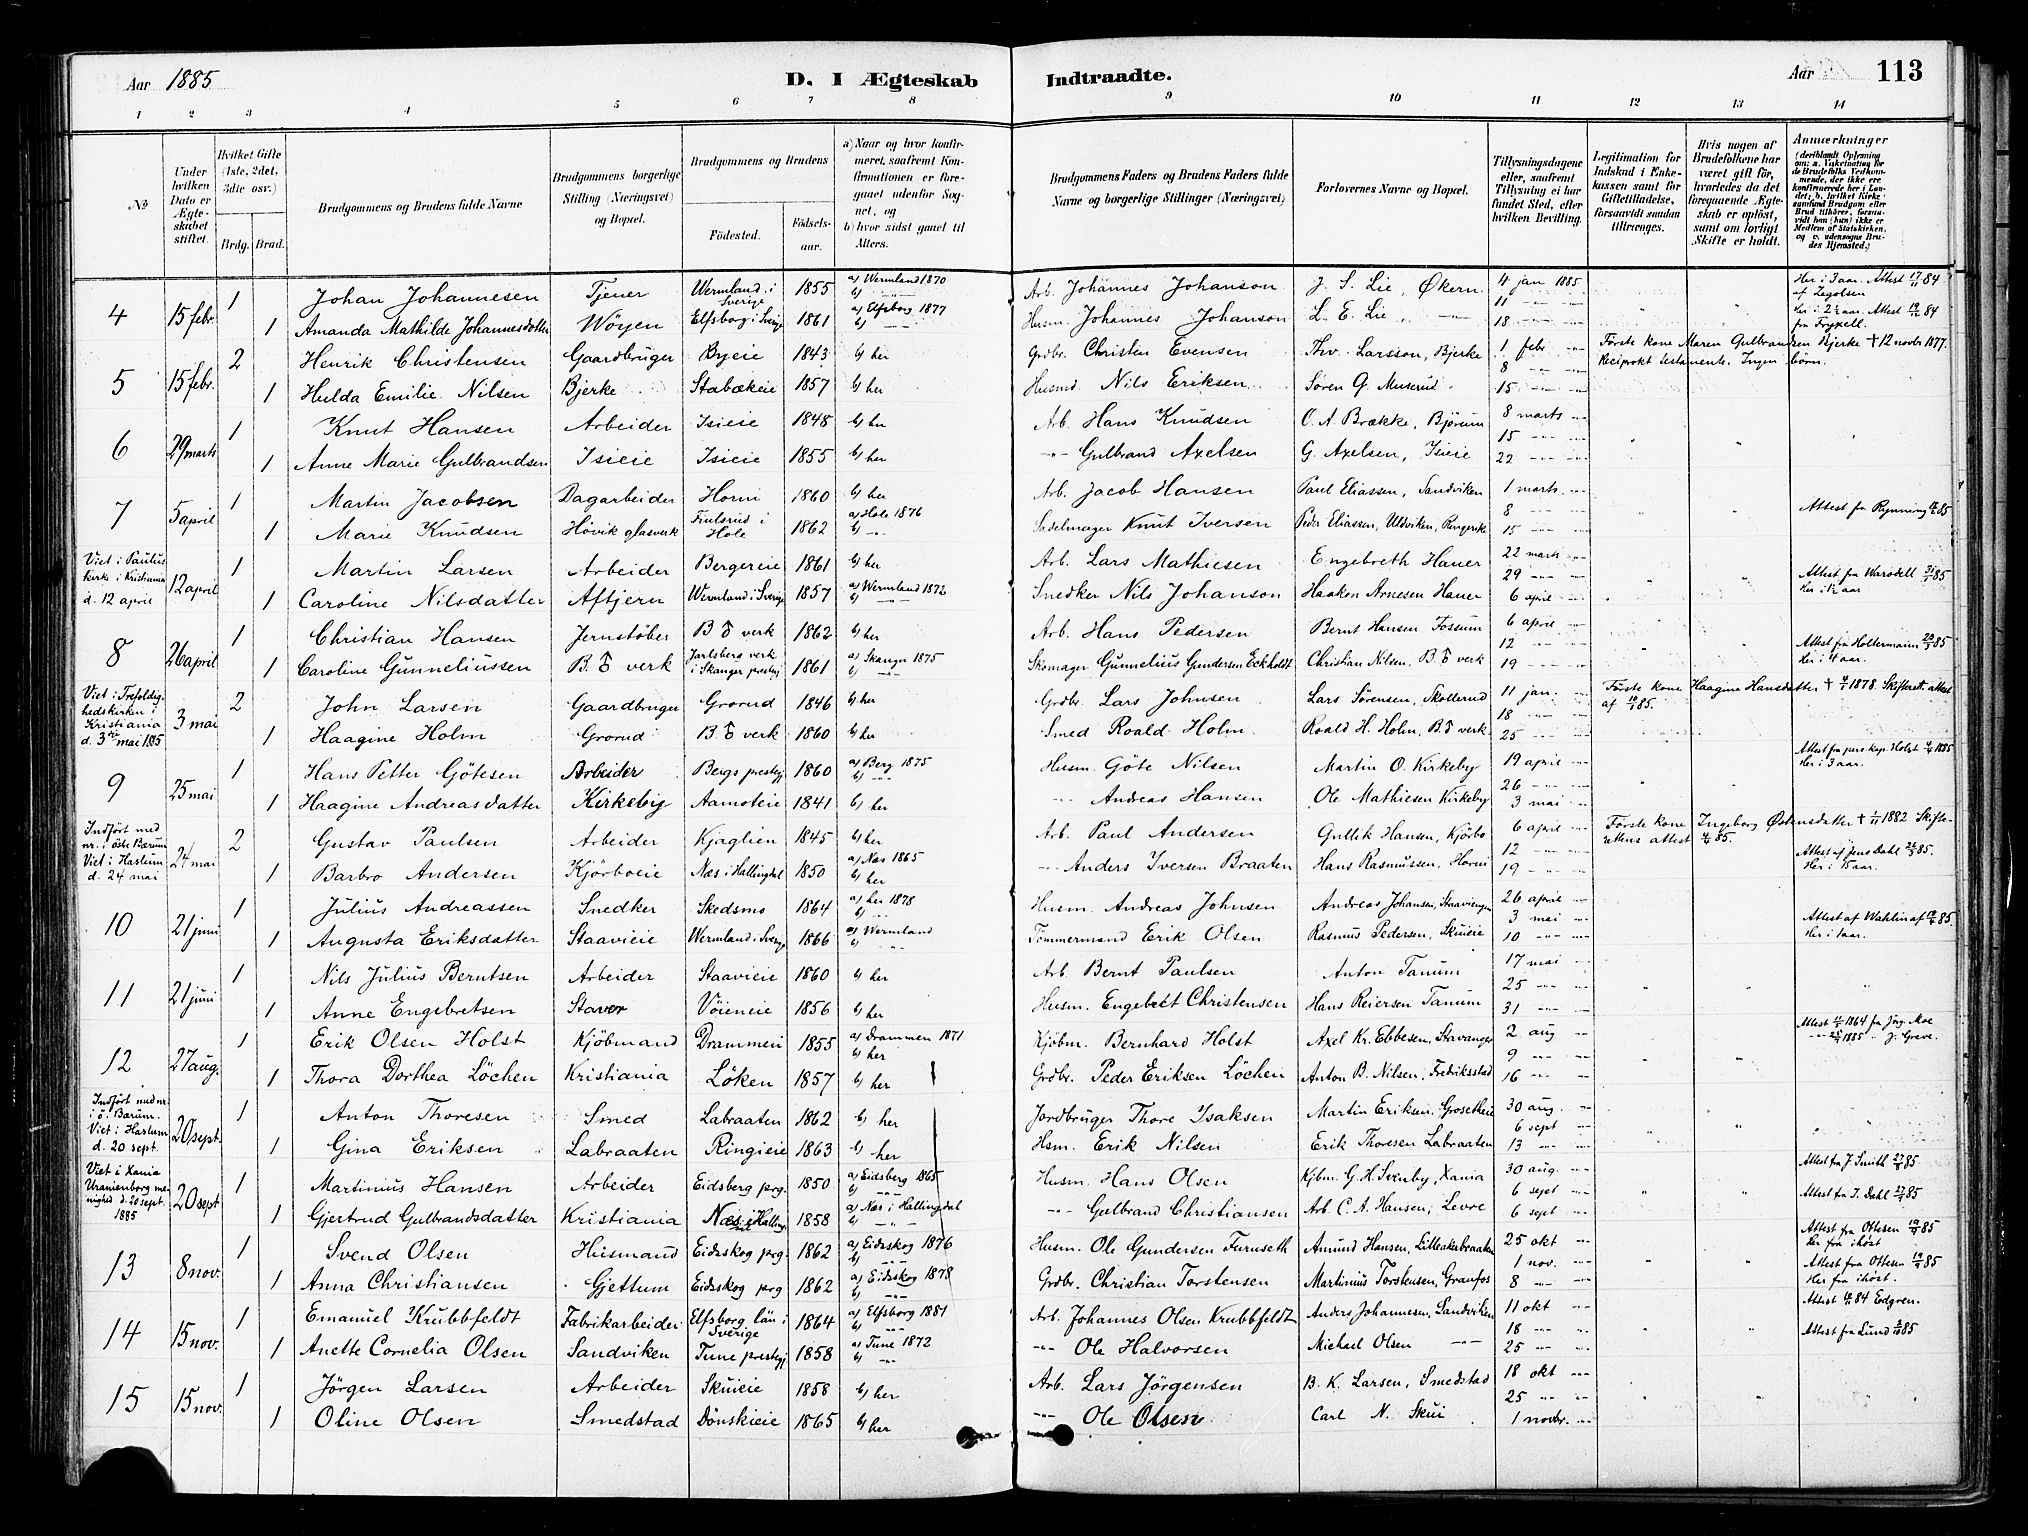 Aar 1885
D. I Ægteskab Indtraadte.
Aar 113
1 2 3 4 5 6 7 8 9 10 11 12 13 14
№
Under hvilken Dato er Ægteskabet stiftet.
Hvilket Gifte (1ste, 2det, 3die osv.)
Brdg. Brud.
Brudgommens og Brudens fulde Navne
Brudgommens borgerlige Stilling (Næringsvei) og Bopæl.
Brudgommens og Brudens
Fødested. Fødselsaar.
a) Naar og hvor konfirmeret, saafremt Konfirmationen er foregaaet udenfor Sognet, og
b) hvor sidst gaaet til Alters.
Brudgommens Faders og Brudens Faders fulde Navne og borgerlige Stillinger (Næringsvei)
Forlovernes Navne og Bopæl.
Tillysningsdagene eller, saafremt Tillysning ei har fundet Sted, efter hvilken Bevilling.
Legitimation for Indskud i Enkekassen samt for Giftetilladelse, forsaavidt saadan tiltrænges.
Hvis nogen af Brudefolkene har været gift før, hvorledes da det foregaaende Ægteskab er opløst, samt om lovligt Skifte er holdt.
Anmærkninger
4 15 febr. 1 Johan Johannesen Tjener Wermland i Sverige 1855 a) Wermland 1870 b) " Arb. Johannes Johanson J. S. Lie, Økern 4 jan 1885. Her i 3 aar. Attest 17/11 84 af Zegolsen
1 Amanda Mathilde Johannesdatter Wöyen Elfsborg i Sverige 1861 a) Elfsborg 1877 b) " Husm. Johannes Johanson L. E. Lie, 11 18 Her i 2½ aar. Attest 84 fra Fryxell.
5 15 febr. 2 Henrik Christensen Gaardbruger Byeie 1843 b) her Grdbr. Christen Evensen Thv. Larsson, Bjerke 1 febr 8 Første kone Maren Gulbrandsen Bjerke † 12 novbr 1877. Reciprokt testamente. Ingen børn.
1 Hulda Emilie Nilsen Bjerke Stabækeie 1857 b) her Husmd. Nils Eriksen Søren G. Muserud 15
6 29 marts 1 Knut Hansen Arbeider Isieie 1848 b) her Arb. Hans Knudsen O. A. Brække, Bjørum 8 marts 15
1 Anne Marie Gulbrandsen Isieie Isieie 1855 b) her " Gulbrand Axelsen G. Axelsen, Isieie 22
7 5 april 1 Martin Jacobsen Dagarbeider Horni 1860 b) her Arb. Jacob Hansen Paul Eliassen, Sandviken 1 marts 8
1 Marie Knudsen Høvik glasverk i Hole 1862 a) Hole 1876 b) " Sadelmager Knut Iversen Peder Eliassen, Uldviken, Ringerike 15 Attest fra Rynning 85
Viet i Paulus kirke i Kristiania d. 12 april 12 april 1 Martin Larsen Arbeider Bergereie 1861 b) her Arb. Lars Mathiesen Engebreth Hauer 22 marts 29
1 Caroline Nilsdatter Aftjern Wermland i Sverige 1857 a) Wermland 1872 b) " Snedker Nils Johanson Haaken Arnesen Hauer 6 april Attest fra Warodell 85 Her i 1½ aar
8 26 april 1 Christian Hansen Jernstøber B. verk 1862 b) her Arb. Hans Pedersen Bernt Hansen Fossum 6 april 12
1 Caroline Gunneliussen B. verk Jarlsberg verk i Skanger prestgj 1861 a) Skanger 1875 b) " Skomager Gunnelius Gundersen Eckholdt Christian Nilsen, B. verk 19 Attest fra Holtermann 85 Her i 4 aar.
Viet i Trefoldighedskirken i Kristiania d. 3die mai 1885 3 mai 2 John Larsen Gaardbruger Grorud 1846 b) her Grdbr. Lars Johnsen Lars Sørensen, Skollerud 11 jan. 18 Første kone Haagine Hansdatter † 1878. Skifterett. attest af 85.
1 Haagine Holm Grorud B. verk 1860 b) her Smed Roald Holm Roald H. Holm, B. verk 25
9 25 mai 1 Hans Petter Götesen Arbeider Bergs prestgj 1860 a) Berg 1875 b) " Husm. Göte Nilsen Martin O. Kirkeby 19 april 26 Attest fra pers. kap. Holst 1885 Her i 3 aar.
1 Haagine Andreasdatter Kirkeby Aamoteie 1841 b) her " Andreas Hansen Ole Mathiesen Kirkeby 3 mai
Indført med nr. i øste Bærum Viet i Haslum d. 24 mai 24 mai 2 Gustav Paulsen Arbeider Kjaglien 1845 b) her Arb. Paul Andersen Gullik Hansen, Kjörbo 6 april 12 Første kone Ingeborg Østensdatter † 1882 Skifterettens attest 85.
1 Barbro Andersen Kjörboeie Næs i Hallingdal 1850 a) Næs 1865 b) her " Anders Iversen Braaten Hans Rasmussen, Horni 19 Attest af jens Dahl 85. Her i 15 aar.
10 21 juni 1 Julius Andreassen Snedker Skedsmo 1864 a) her 1878 b) " Husm. Andreas Johnsen Andreas Johansen, Staaviengen 26 april 3 mai
1 Augusta Eriksdatter Staavieie Wermland i Sverig 1866 a) Wermland b) " Tømmermand Erik Olsen Rasmus Pedersen, Skuieie 10 Attest af Wahlin af 85. Her i 1 aar.
11 21 juni 1 Nils Julius Berntsen Arbeider Staavieie 1860 b) her Arb. Bernt Paulsen Anton Tanum 17 mai 25
1 Anne Engebretsen Staver Vöieneie 1856 b) her Husm. Engebret Christensen Hans Reiersen Tanum 31
12 27 aug. 1 Erik Olsen Holst Kjöbmand Drammen 1855 a) Drammen 1871 b) her Kjöbm. Bernhard Holst Axel Kr. Ebbesen, Stavanger 2 aug 9 Attest 1864 fra Jörg. Moe " 1885 " J. Greve.
1 Thora Dorthea Löchen Kristiania Löken 1857 b) her Grdbr. Peder Eriksen Löchen Anton B. Nilsen, Fredriksstad 16
Indført med nr. i ö. Bærum. Viet i Haslum d. 20 sept. 20 sept. 1 Anton Thoresen Smed Labraaten 1862 b) her Jordbruger Thore Isaksen Martin Eriksen, Grosetheie 30 aug. 6 sept
1 Gina Eriksen Labraaten Ringieie 1863 b) her Hsm. Erik Nilsen Erik Thoresen Labraaten 13
Viet i Xania Uranienborg menighed d. 20 sept. 1885 20 sept 1 Martinius Hansen Arbeider Eidsberg prg. 1850 a) Eidsberg 1865 b) " Husm. Hans Olsen Kjbm. G. H. Svenby, Xania 30 aug. 6 sept Attest fra J. Smith 85.
1 Gjertrud Gulbrandsdatter Kristiania Næs i Halling 1858 a) Næs i Hallingdal b) " " Gulbrand Christiansen Arb. C. A. Hansen, Levre 6 sept Attest fra J. Dahl 85
13 8 nov. 1 Svend Olsen Husmand Eidsskog prg. 1862 a) Eidsskog 1876 b) " Husm. Ole Gundersen Furuseth Amund Hansen, Lilleakerbraaten 25 okt 1 nov. Attest fra Ottesen 85 Her fra ihøst
1 Anna Christiansen Gjettum Eidsskog prg 1862 a) Eidsskog 1878 b) " Grdbr. Christian Torstensen Martinius Torstensen, Granfos 8 Attest fra Ottesen 85 Her fra ihøst.
14 15 nov. 1 Emanuel Krubbfeldt Fabrikarbeider Elfsborg län i Sverige 1864 a) Elfsborg 1881 b) " Arb. Johannes Olsen Krubbfeldt Anders Johannesen, Sandviken 11 okt 18 Attest 84 Edgren.
1 Anette Cornelia Olsen Sandviken Tune prestegj 1858 a) Tune 1872 b) " " Ole Halvorsen Michael Olsen 25 Attest fra Lund 85
15 15 nov. 1 Jörgen Larsen Arbeider Skuieie 1858 b) her Arb. Lars Jörgensen B. K. Larsen, Smedstad 18 okt 25
1 Oline Olsen Smedstad Dönskieie 1865 b) her " Ole Olsen Carl N. Skui 1 novbr.